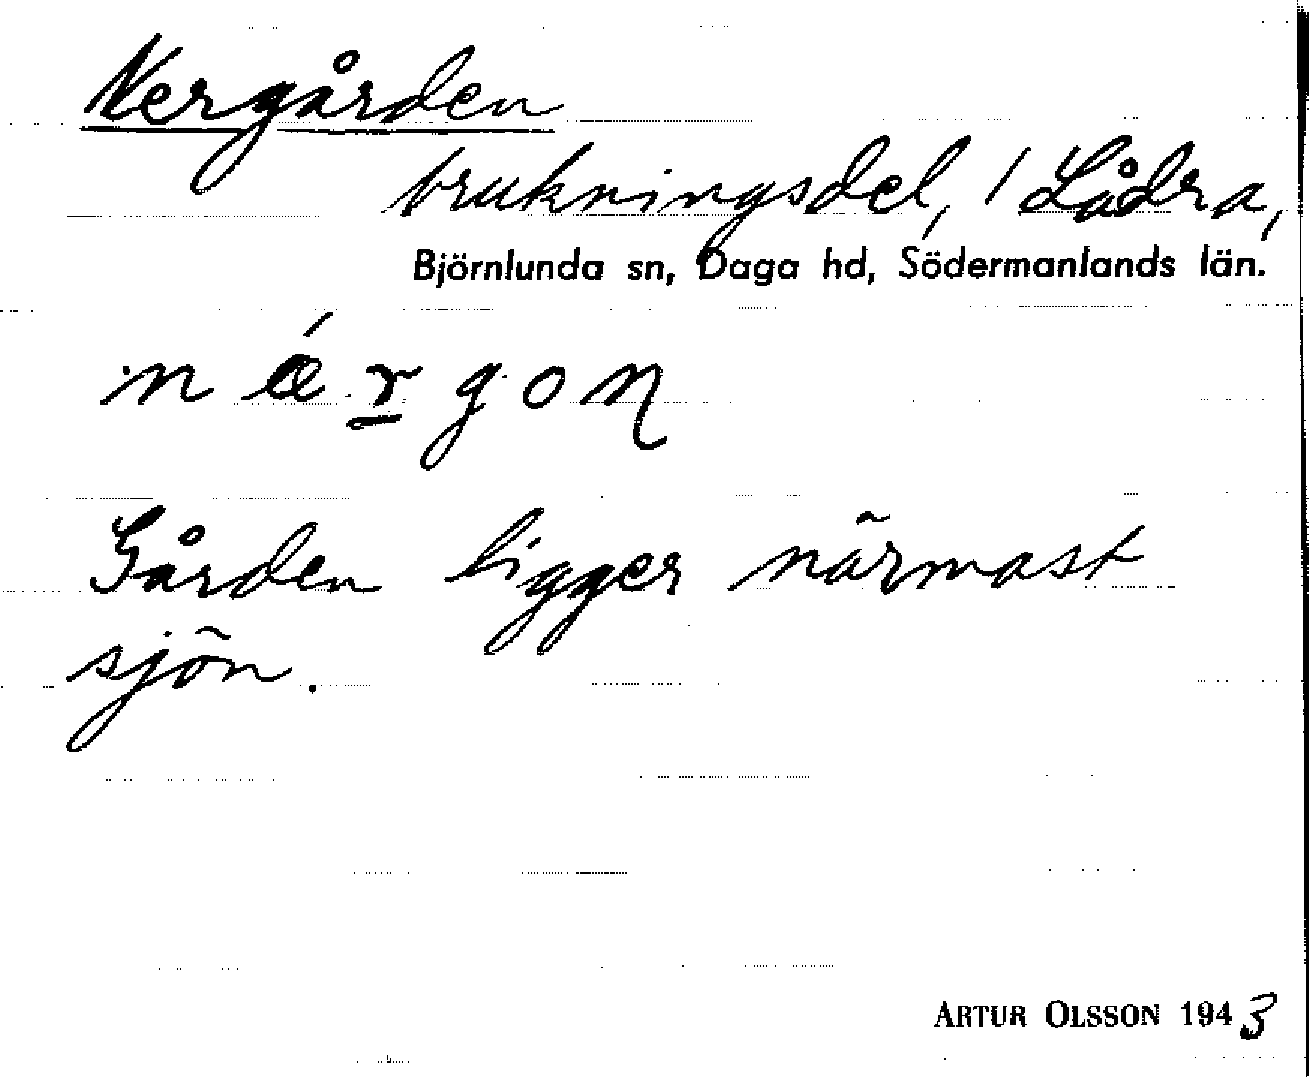 Nergården
brukningsdel, i Lådra,
Björnlunda sn, Daga hd, Södermanlands län.
nǽr̲gon
Gården ligger närmast
sjön.
ARTUR OLSSON 1943